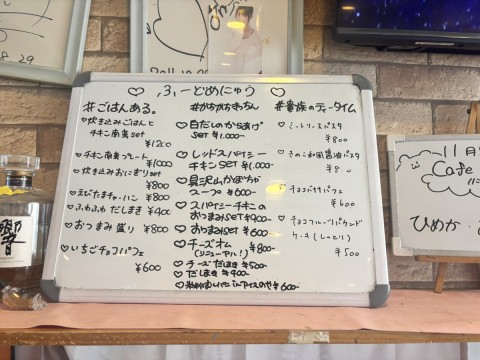 ♡ ふーどめにゅう ♡
#ごはんある。
♡炊き込みごはんと
チキン南蛮set
¥1200
♡チキン南蛮プレート
¥1000
♡炊き込みおにぎりset
¥800
♡えびたまチャーハン ¥800
♡ふわふわ だしまき ¥400
♡おつまみ盛り ¥800
♡いちごチョコパフェ
¥600
#がちがちきっちん
♡白だしのからあげ
set ¥1,000-
♡レッドスパイシー
チキンset ¥1,000-
♡具沢山かぼちゃ
スープ ¥600-
♡スパイシーチキンの
おつまみset ¥900-
♡おつまみset ¥600-
♡チーズオム ¥800-
(リニューアル!)
♡チーズだしまき ¥500-
♡だしまき ¥400-
¥600-
#貴族のティータイム
♡ミートソースパスタ
¥800
♡きのこ和風醤油パスタ
♡チョコバナナパフェ
¥600
♡チョコフルーツパウンド
ケーキ(しっとり)
¥500
11月
Cafe
ひめか
響